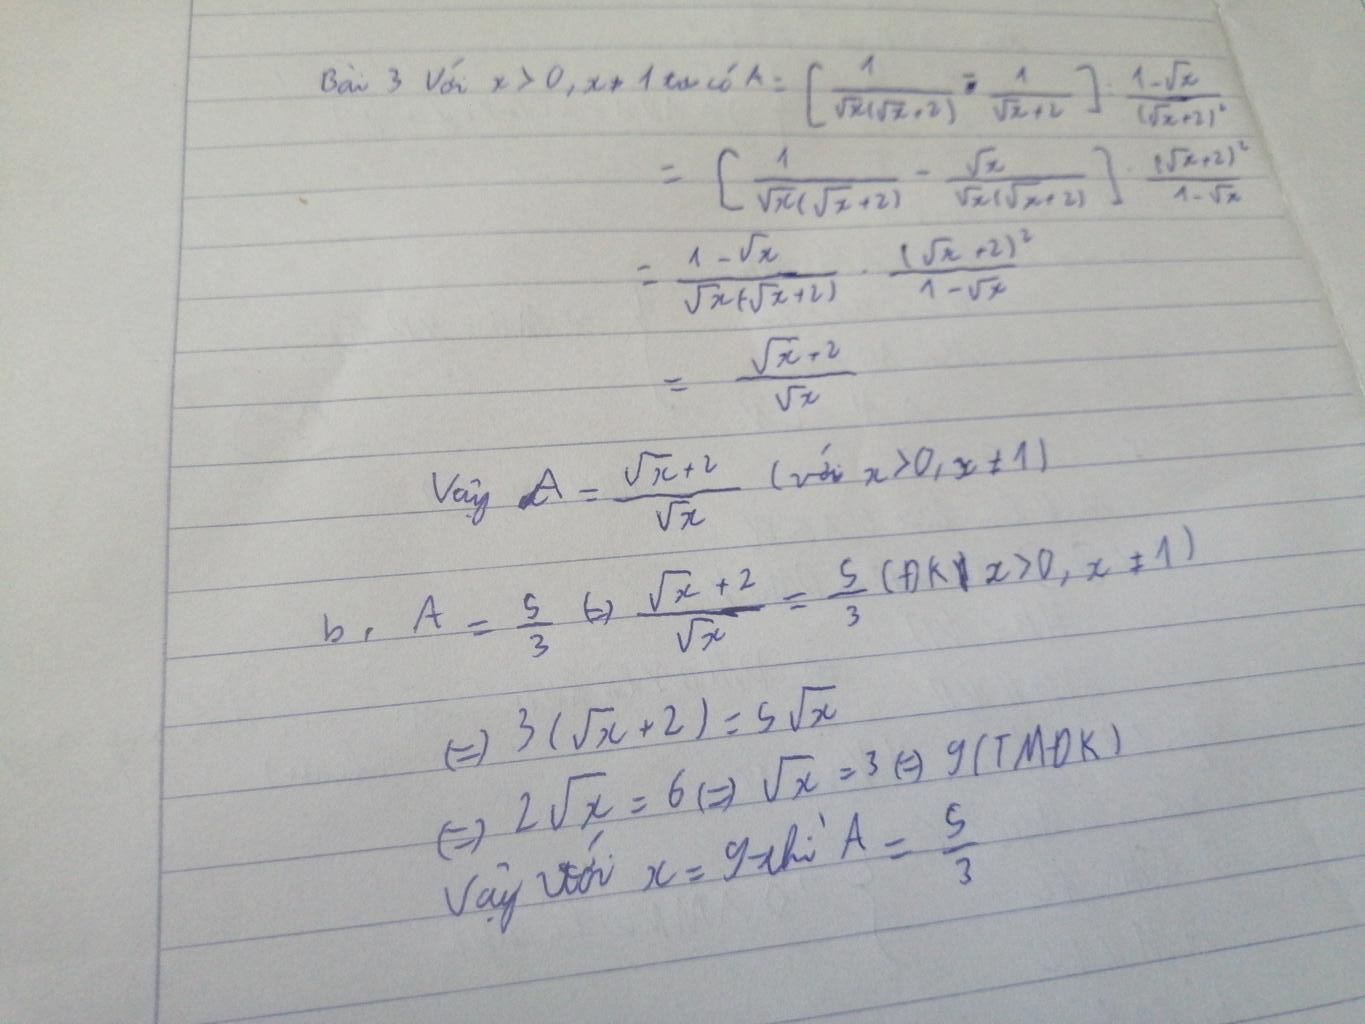 Bài 3 Với x > 0, x ≠ 1 ta có A = [ 1/(√x(√x+2)) - 1/(√x+2) ] : (1-√x)/(√x+2)²
= [ 1/(√x(√x+2)) - √x/(√x(√x+2)) ] . (√x+2)²/(1-√x)
= (1-√x)/(√x(√x+2)) . (√x+2)²/(1-√x)
= (√x+2)/√x
Vậy A = (√x+2)/√x (với x > 0, x ≠ 1)
b, A = 5/3 (=) (√x+2)/√x = 5/3 (ĐK x > 0, x ≠ 1)
(=) 3(√x+2) = 5√x
(=) 2√x = 6 (=) √x = 3 (=) 9 (TMĐK)
Vậy với x = 9 thì A = 5/3